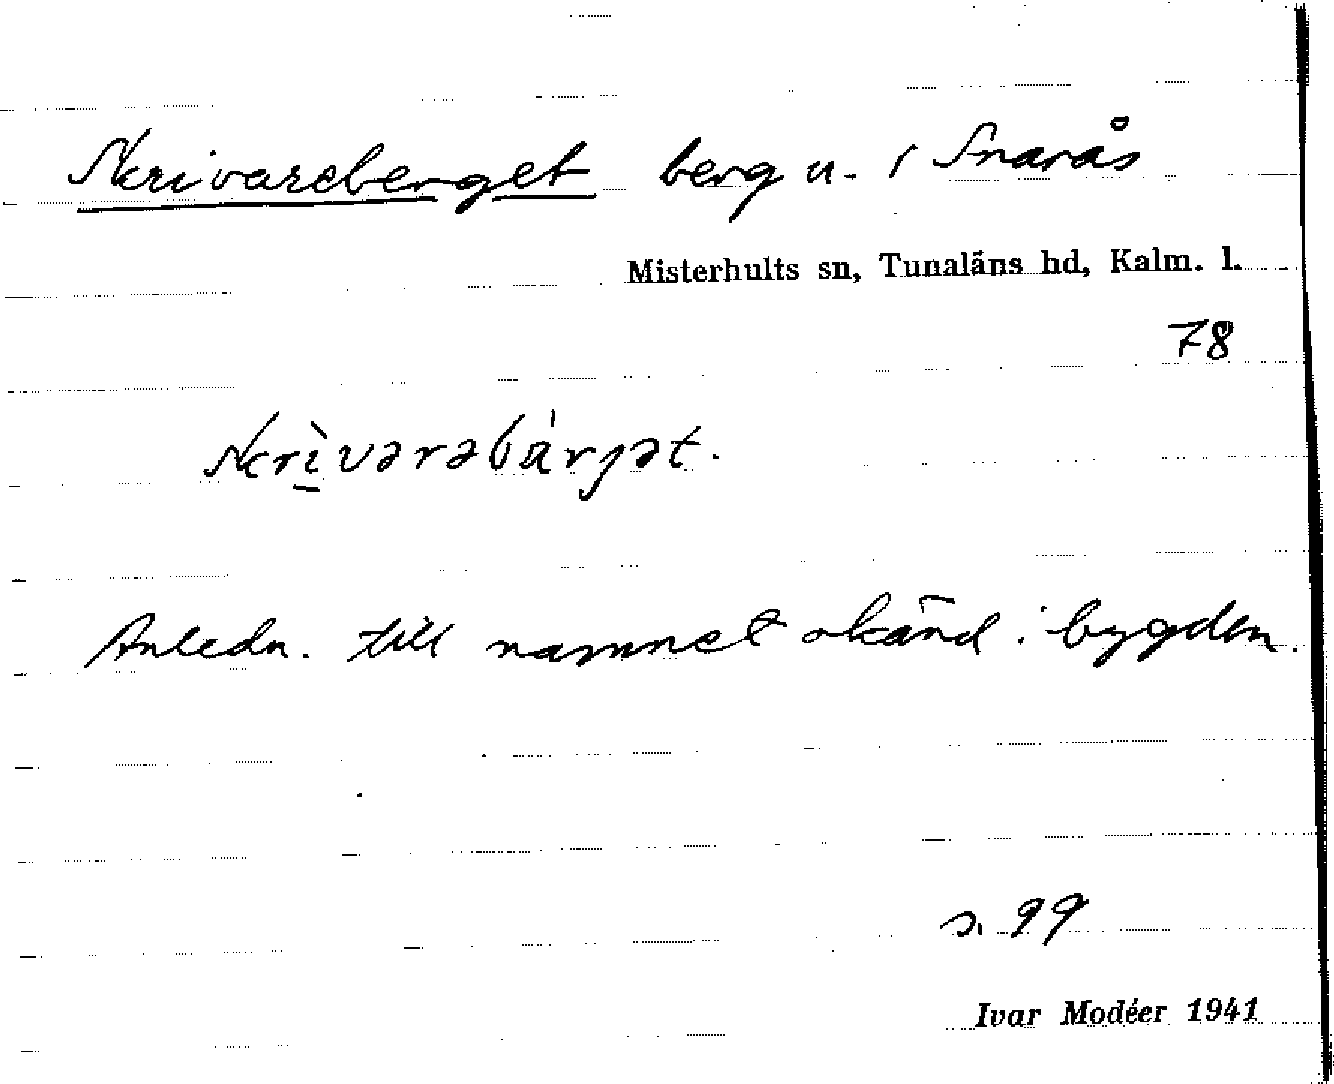 Skrivareberget berg u. i Snarås
Misterhults sn, Tunaläns hd, Kalm. l.
78
Skrìvarabárjət.
Anledn. till namnet okänd i bygden.
s. 99
Ivar Modéer 1941